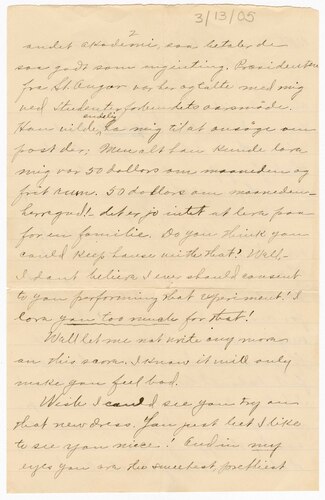 3/13/05
2
andet akademi, saa betaler de
saa godt som ingenting. Presidenten
fra St. Ansgar var her og talte med mig
ved Studenterforbundets aarsmøde.
Han vilde endelig ha mig til at ansøge om
post der; Men alt han kunde love
mig var 50 dollars om maaneden og
frit rum. 50 dollars om maaneden–
herregud! det er jo intet at leve paa
for en familie. Do you think you
could keep house with that? Well–
I don't believe I ever should consent
to you performing that experiment! I
love you too much for that!
Well let me not write any more
on this score. I know it will only
make you feel bad.
Wish I could see you try on
that new dress. You just bet I like
to see you nice! And in my
eyes you are the sweetest, prettiest